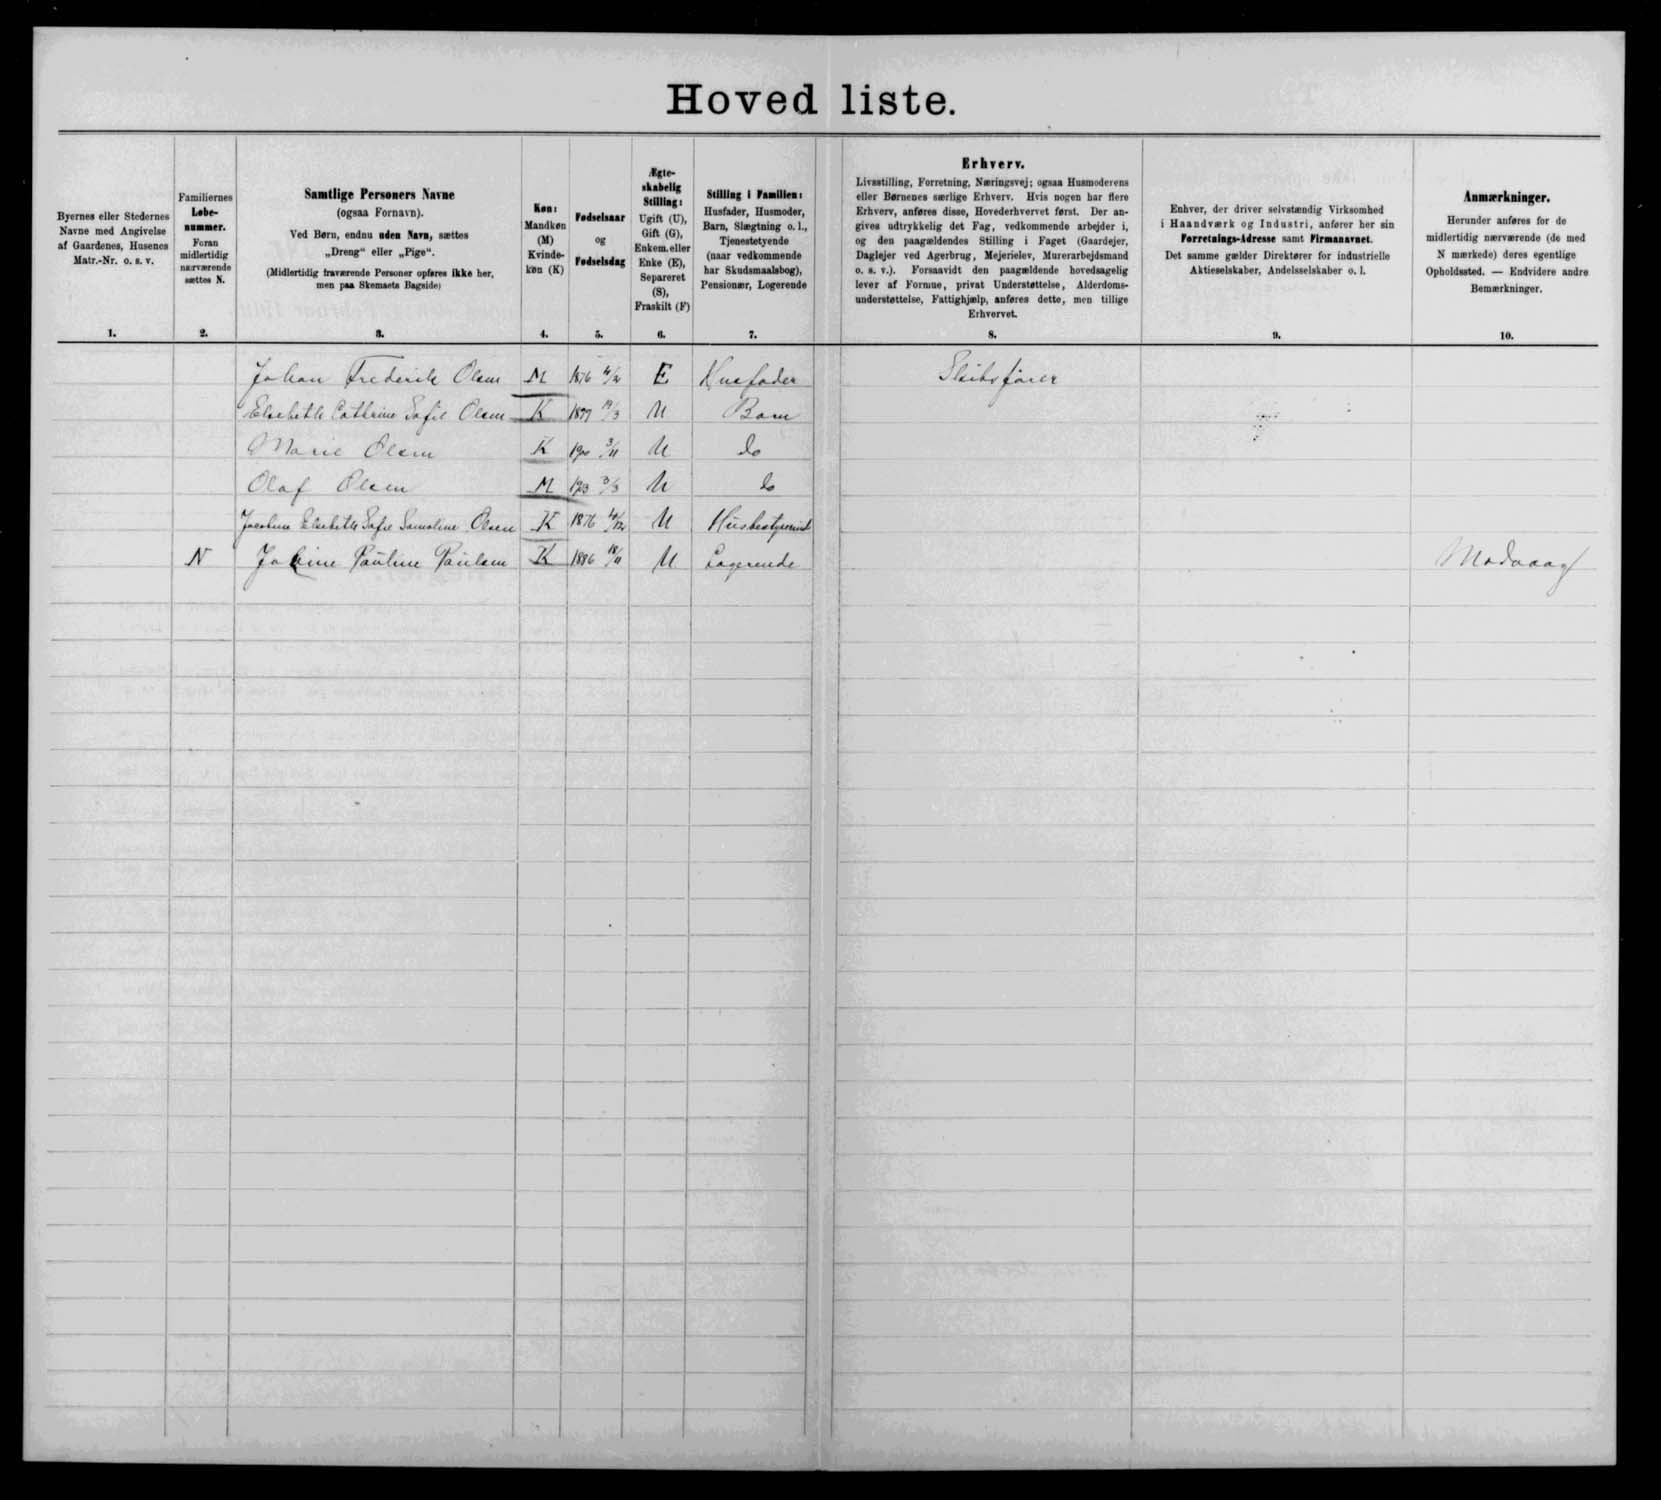 Hoved liste.
Byernes eller Stedernes
Navne med Angivelse
af Gaardenes, Husenes
Matr.-Nr. o. s. v.
1.
Familiernes
Løbe-
nummer.
Foran
midlertidig
nærværende
sættes N.
2.
Samtlige Personers Navne
(ogsaa Fornavn).
Ved Børn, endnu uden Navn, sættes
„Dreng“ eller „Pige“.
(Midlertidig fraværende Personer opføres ikke her,
men paa Skemaets Bagside)
3.
Køn:
Mandkøn
(M)
Kvinde-
køn (K)
4.
Fødselsaar
og
Fødselsdag
5.
Ægte-
skabelig
Stilling:
Ugift (U),
Gift (G),
Enkem. eller
Enke (E),
Separeret
(S),
Fraskilt (F)
6.
Stilling i Familien:
Husfader, Husmoder,
Barn, Slægtning o. l.,
Tjenestetyende
(naar vedkommende
har Skudsmaalsbog),
Pensionær, Logerende
7.
Erhverv.
Livsstilling, Forretning, Næringsvej; ogsaa Husmoderens
eller Børnenes særlige Erhverv. Hvis nogen har flere
Erhverv, anføres disse, Hovederhvervet først. Der an-
gives udtrykkelig det Fag, vedkommende arbejder i,
og den paagældendes Stilling i Faget (Gaardejer,
Daglejer ved Agerbrug, Mejerielev, Murerarbejdsmand
o. s. v.). Forsaavidt den paagældende hovedsagelig
lever af Formue, privat Understøttelse, Alderdoms-
understøttelse, Fattighjælp, anføres dette, men tillige
Erhvervet.
8.
Enhver, der driver selvstændig Virksomhed
i Haandværk og Industri, anfører her sin
Forretnings-Adresse samt Firmanavnet.
Det samme gælder Direktører for industrielle
Aktieselskaber, Andelsselskaber o. l.
9.
Anmærkninger.
Herunder anføres for de
midlertidig nærværende (de med
N mærkede) deres egentlige
Opholdssted. — Endvidere andre
Bemærkninger.
10.
Johan Frederik Olsen M 1876 4/12 E Husfader Skibsfører
Elsebeth Cathrine Sofie Olsen K 1899 19/3 U Barn
Marie Olsen K 1900 3/11 U do
Olaf Olsen M 1903 3/3 U do
Jacobine Elsebeth Sofie Samaline Olsen K 1876 4/12 U Husbestyrerinde
N Pauline Paulsen K 1886 18/11 U Logerende